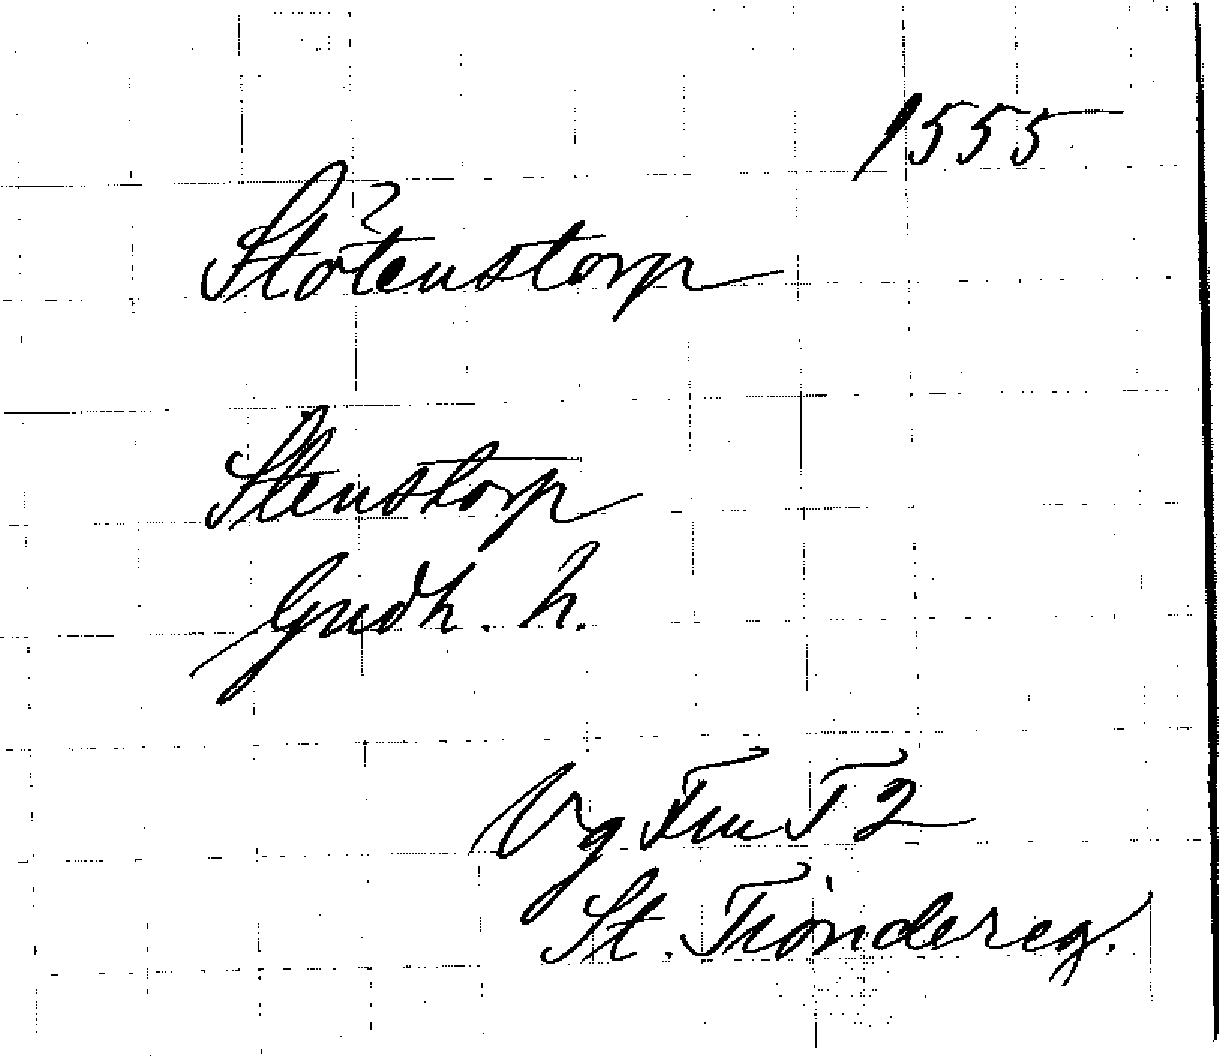 1555
Stötenstorp
Stenstorp
Gudh. h.
Vg T 2
St. Tiondereg.